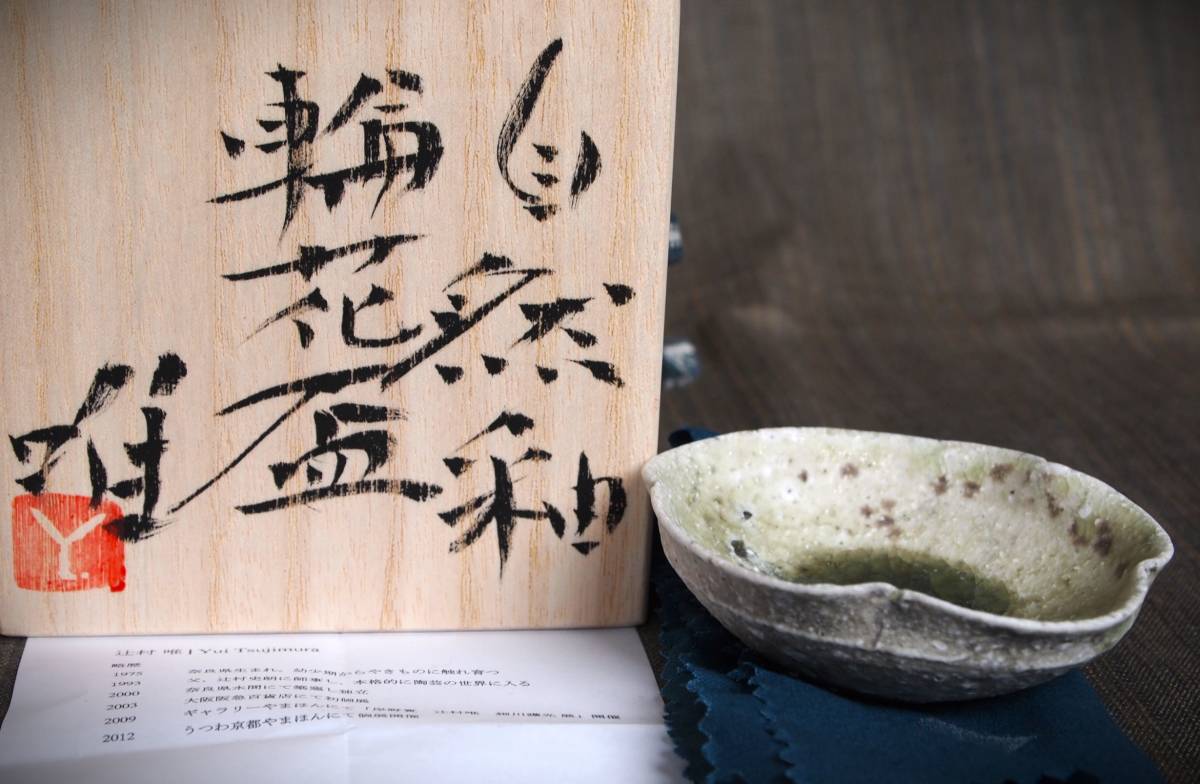 自然釉
輪花盃
唯
Y.
辻村 唯 | Yui Tsujimura
略歴
1975 奈良県生まれ、幼少期からやきものに触れ育つ
1993 父、辻村史朗に師事し、本格的に陶芸の世界に入る
2000 奈良県水間にて築窯し独立
2003 大阪阪急百貨店にて初個展
2009 ギャラリーやまほんにて「岸野寛 辻村唯 細川護光 展」開催
2012 うつわ京都やまほんにて個展開催